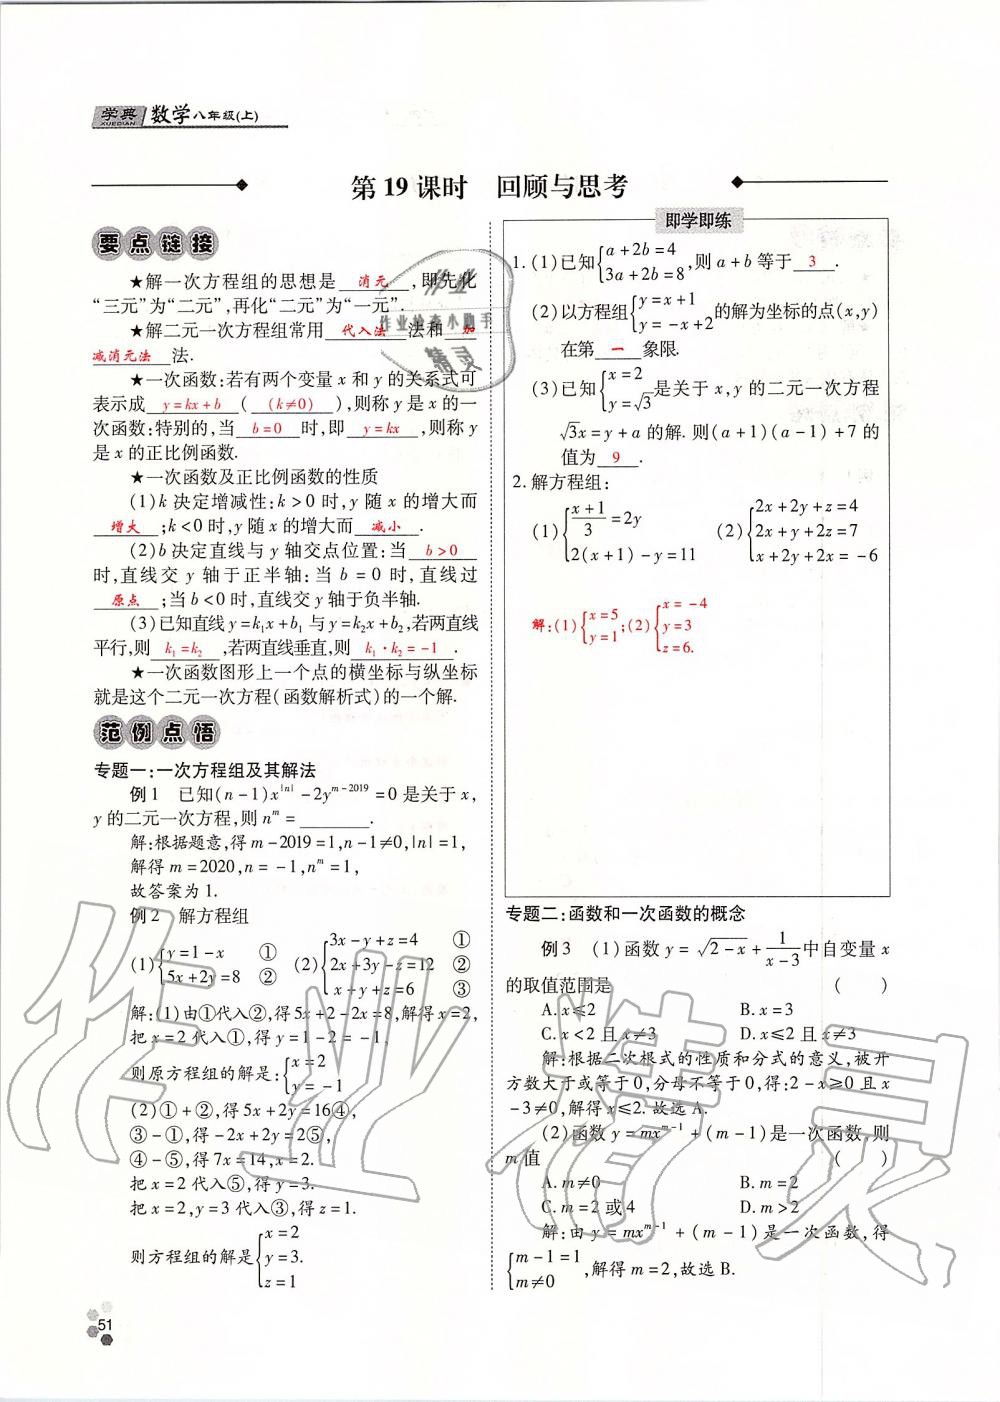 学典 数学八年级(上)
XUEDIAN
第 19 课时　回顾与思考
要点链接
★解一次方程组的思想是 消元 ,即先化
“三元”为“二元”,再化“二元”为“一元”.
★解二元一次方程组常用 代入法 法和 加
减消元法 法.
★一次函数:若有两个变量 x 和 y 的关系式可
表示成 y=kx+b ( (k≠0) ),则称 y 是 x 的一
次函数:特别的,当 b=0 时,即 y=kx ,则称 y
是 x 的正比例函数.
★一次函数及正比例函数的性质
(1)k 决定增减性:k>0 时,y 随 x 的增大而
增大 ;k<0 时,y 随 x 的增大而 减小 .
(2)b 决定直线与 y 轴交点位置:当 b>0
时,直线交 y 轴于正半轴:当 b=0 时,直线过
原点 ;当 b<0 时,直线交 y 轴于负半轴.
(3)已知直线 y=k₁x+b₁ 与 y=k₂x+b₂,若两直线
平行,则 k₁=k₂ ,若两直线垂直,则 k₁·k₂=-1 .
★一次函数图形上一个点的横坐标与纵坐标
就是这个二元一次方程(函数解析式)的一个解.
范例点悟
专题一:一次方程组及其解法
例1　已知(n-1)x^|n|-2y^(m-2019)=0 是关于 x,
y 的二元一次方程,则 n^m=________.
解:根据题意,得 m-2019=1,n-1≠0,|n|=1,
解得 m=2020,n=-1,n^m=1,
故答案为 1.
例2　解方程组
(1){y=1-x ① 5x+2y=8 ② (2){3x-y+z=4 ① 2x+3y-z=12 ② x+y+z=6 ③
解:(1)由①代入②,得 5x+2-2x=8,解得 x=2,
把 x=2 代入①,得 y=1-2=-1,
则原方程组的解是:{x=2 y=-1
(2)①+②,得 5x+2y=16④,
③-①,得 -2x+2y=2⑤,
④-⑤,得 7x=14,x=2.
把 x=2 代入⑤,得 y=3.
把 x=2,y=3 代入③,得 z=1.
则方程组的解是{x=2 y=3. z=1
51
即学即练
1.(1)已知{a+2b=4 3a+2b=8,则 a+b 等于 3 .
(2)以方程组{y=x+1 y=-x+2 的解为坐标的点(x,y)
在第 一 象限.
(3)已知{x=2 y=√3 是关于 x,y 的二元一次方程
√3x=y+a 的解. 则(a+1)(a-1)+7 的
值为 9 .
2.解方程组:
(1){(x+1)/3=2y 2(x+1)-y=11 (2){2x+2y+z=4 2x+y+2z=7 x+2y+2x=-6
解:(1){x=5 y=1;(2){x=-4 y=3 z=6.
专题二:函数和一次函数的概念
例3　(1)函数 y=√(2-x)+1/(x-3)中自变量 x
的取值范围是　(　　)
A.x≤2　B.x=3
C.x<2 且 x≠3　D.x≤2 且 x≠3
解:根据二次根式的性质和分式的意义,被开
方数大于或等于0,分母不等于0,得:2-x≥0 且 x
-3≠0,解得 x≤2. 故选 A.
(2)函数 y=mx^(m-1)+(m-1)是一次函数,则
m 值　(　　)
A.m≠0　B.m=2
C.m=2 或 4　D.m>2
解:由 y=mx^(m-1)+(m-1)是一次函数,得
{m-1=1 m≠0 ,解得 m=2,故选 B.
作业
作业检查小助手
精灵
作业精灵